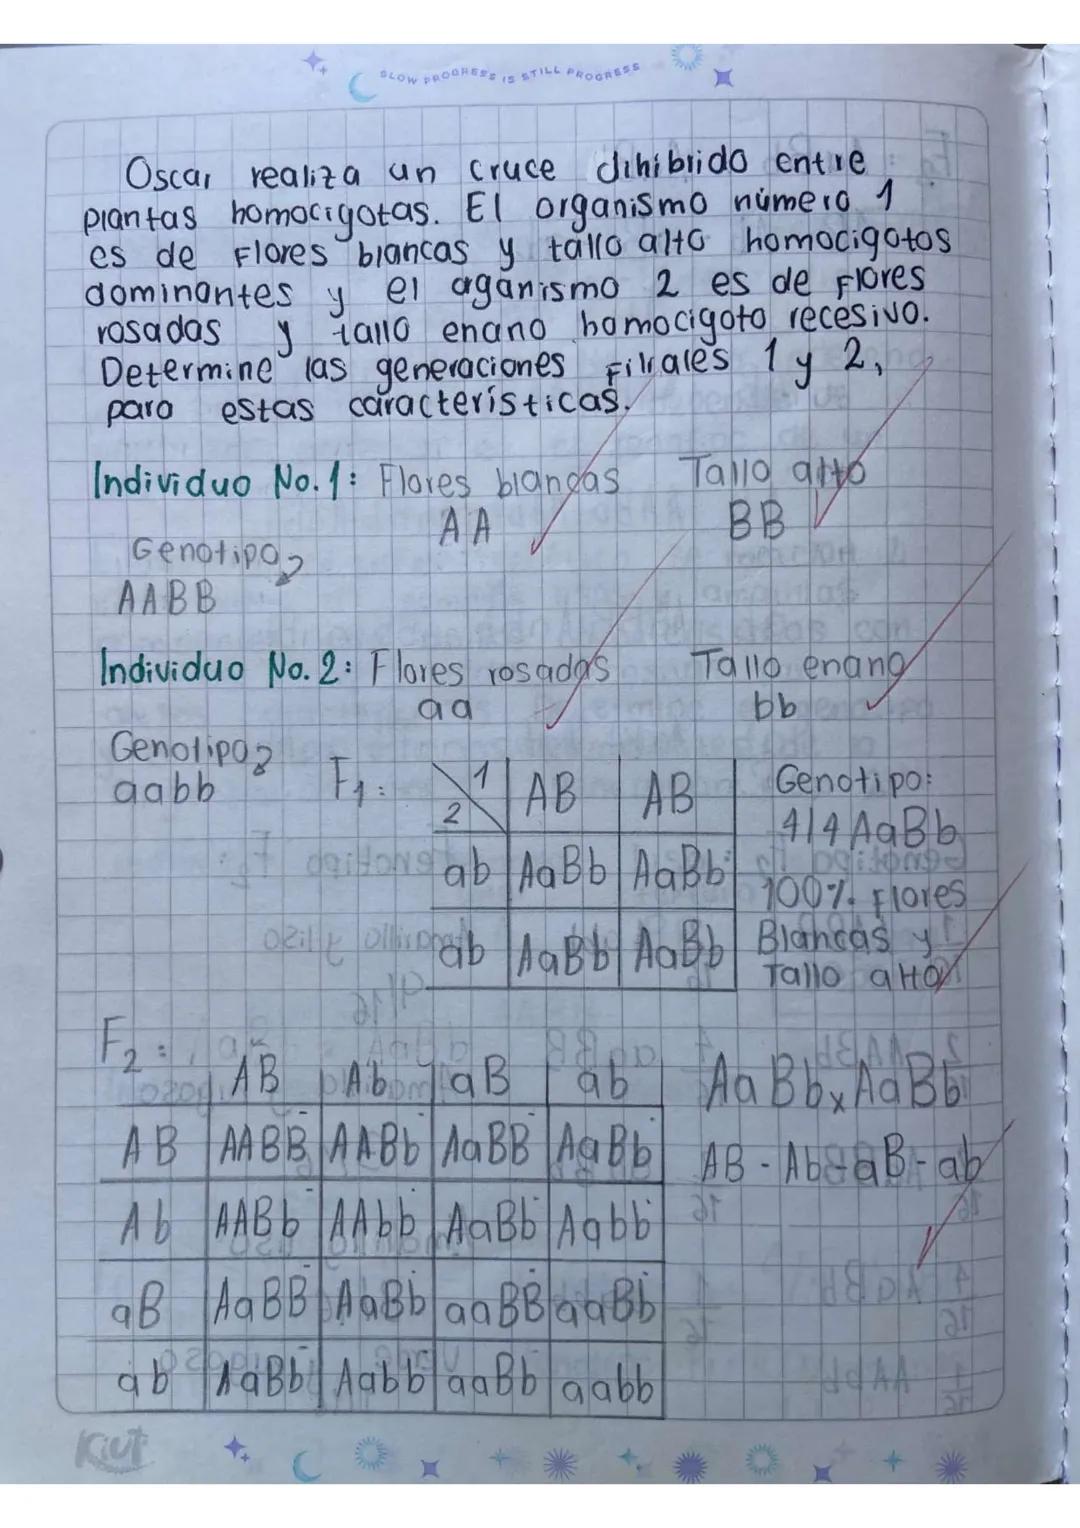 SLOW PROGRESS IS STILL PROGRESS
Oscar realiza un cruce dihibrido entre
plantas homocigotas. El organismo número 1
es de Flores blancas y tallo alto homocigotos
dominantes y el aganismo 2 es de Flores
rosadas y tallo enano homocigoto recesivo.
Determine las generaciones Filiales 1 y 2,
para estas características.
Individuo No. 1: Flores blancas Tallo alto
AA BB
Genotipo
AABB
Individuo No. 2: Flores rosadas Tallo enano
aa bb
Genotipo
aabb
F1:
1 AB AB
2
ab AaBb AaBb
ab AaBb AaBb
Genotipo:
4/4 AaBb
100% Flores
Blancas y
Tallo alto
F2:
AB Ab aB ab
AB AABB AABb AaBB AaBb
Ab AABb AAbb AaBb Aabb
aB AaBB AaBb aaBB aaBb
ab AaBb Aabb aaBb aabb
AaBb x AaBb
AB - Ab - aB - ab
Kiut